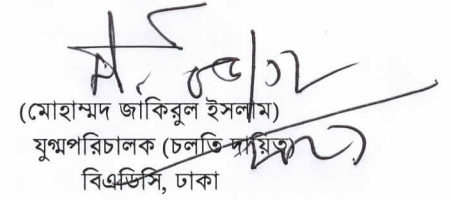 (মোহাম্মদ জাকিরুল ইসলাম)
যুগ্মপরিচালক (চলতি দায়িত্ব)
বিএডিসি, ঢাকা